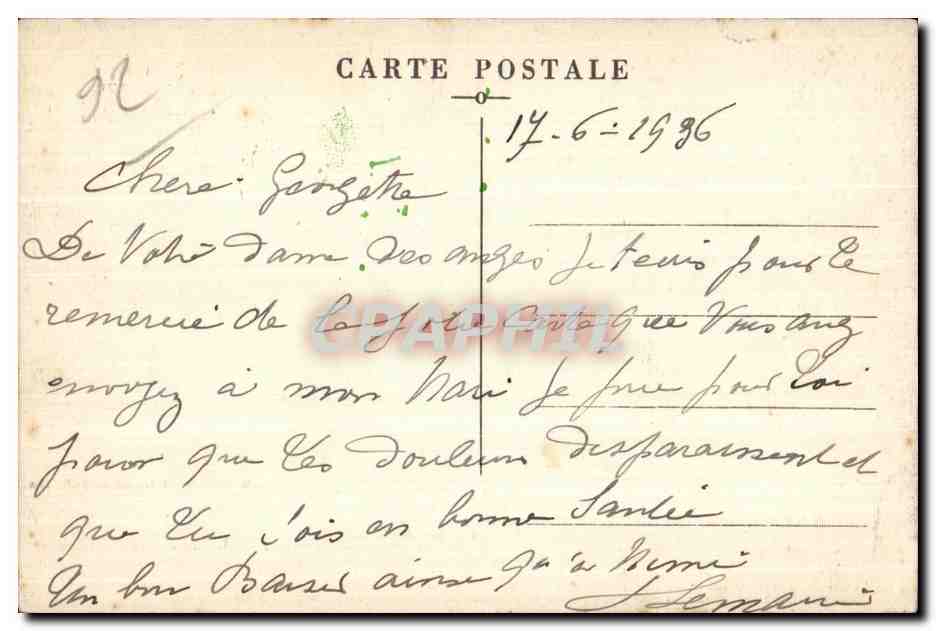 92
CARTE POSTALE
17-6-1936
Chere Georgette
De Notre dame des anges je viens pour te
remercié de la jolie Carte que Vous avez
envoyez à mon Mari je prie pour toi
pour que tes douleurs disparaissent et
que tu sois en bonne Santée
Un bon Baiser ainsi qu'à Mimi
CPAPHIL